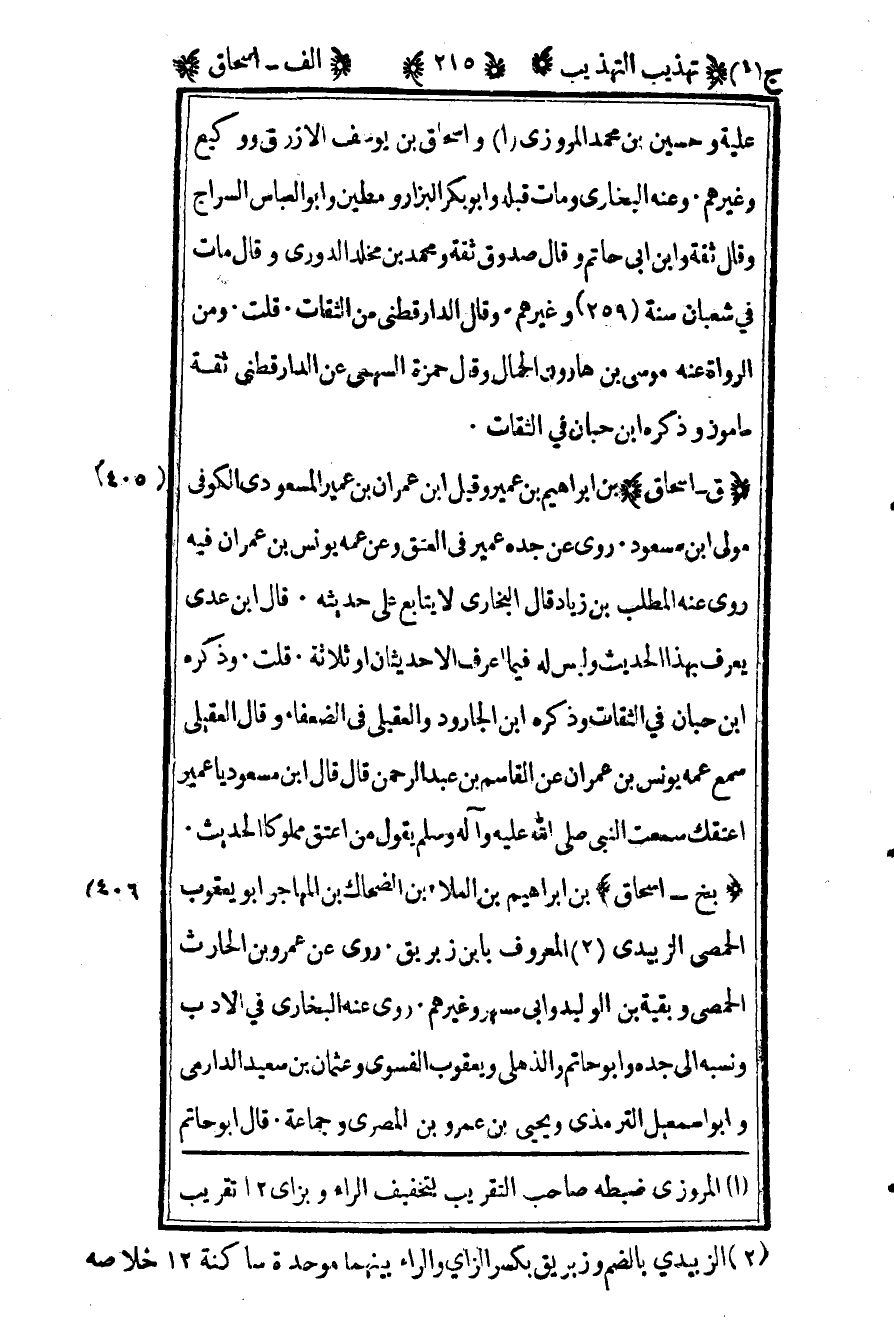 ج(٤) ﴿ تهذيب التهذيب ﴾ ﴿ ٢١٥ ﴾ ﴿ الف ـ اسحاق ﴾
علية و حسين بن محمد المروزى (١) و اسحاق بن يوسف الازرق ووكيع
وغيرهم ٠ وعنه البخارى ومات قبله وابوبكر البزار و مطين وابوالعباس السراج
وقال ثقة وابن ابى حاتم و قال صدوق ثقة و محمد بن مخلد الدورى و قال مات
في شعبان سنة (٢٥٩) و غيرهم ٠ وقال الدارقطنى من الثقات ٠ قلت ٠ ومن
الرواة عنه موسى بن هارون الحمال وقال حمزة السهمى عن الدارقطنى ثقة
مامون و ذكره ابن حبان في الثقات ٠
﴿ ق ـ اسحاق ﴾ بن ابراهيم بن عمير وقيل ابن عمران بن عمير المسعودى الكوفى (٤٠٥)
مولى ابن مسعود ٠ روى عن جده عمير فى العتق وعن عمه يونس بن عمران فيه
روى عنه المطلب بن زياد قال البخارى لايتابع على حديثه ٠ قال ابن عدى
يعرف بهذا الحديث وليس له فيما اعرف الاحديثان او ثلاثة ٠ قلت ٠ وذكره
ابن حبان في الثقات وذكره ابن الجارود والعقيلى فى الضعفاء و قال العقيلى
سمع عمه يونس بن عمران عن القاسم بن عبدالرحمن قال قال ابن مسعود ياعمير
اعتقك سمعت النبى صلى الله عليه وآله وسلم يقول من اعتق مملوكا الحديث ٠
﴿ بخ ـ اسحاق ﴾ بن ابراهيم بن العلاء بن الضحاك بن المهاجر ابو يعقوب (٤٠٦
الحمصى الزبيدى (٢) المعروف بابن زبريق ٠ روى عن عمرو بن الحارث
الحمصى و بقية بن الوليد وابى مسهر وغيرهم ٠ روى عنه البخارى في الادب
ونسبه الى جده وابوحاتم والذهلى ويعقوب الفسوى وعثمان بن سعيد الدارمى
و ابو اسمعيل الترمذى ويحيى بن عمرو بن المصرى و جماعة ٠ قال ابوحاتم
(١) المروزى ضبطه صاحب التقريب بتخفيف الراء و بزاى ١٢ تقريب
(٢) الزبيدي بالضم و زبريق بكسر الزاي والراء بينهما موحدة ساكنة ١٢ خلاصه